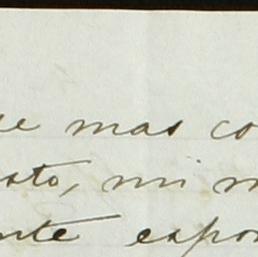 ue mas co
sto, mi m
nte espon